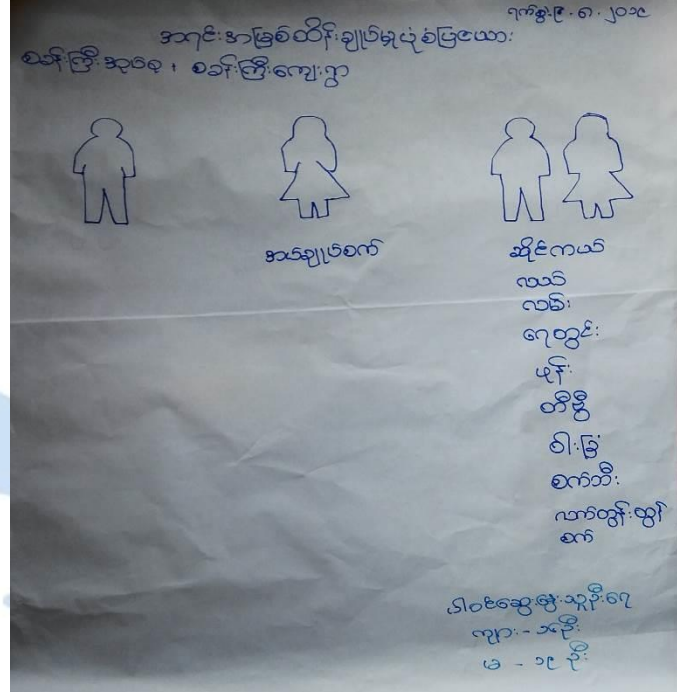 ရက်စွဲ၊ ၉. ၈. ၂၀၁၉
အရင်းအမြစ်ထိန်းချုပ်မှုပုံစံပြဇယား
စခန်းကြီးအုပ်စု၊ စခန်းကြီးကျေးရွာ
အပ်ချုပ်စက်
ဆိုင်ကယ်
လယ်
လမ်း
ရေတွင်း
ဖုန်း
တီဗွီ
ဝါးခြံ
စက်ဘီး
လက်တွန်းထွန်
စက်
ပါဝင်ဆွေးနွေးသူဦးရေ
ကျား - ၁၄ဦး
မ - ၁၉ ဦး